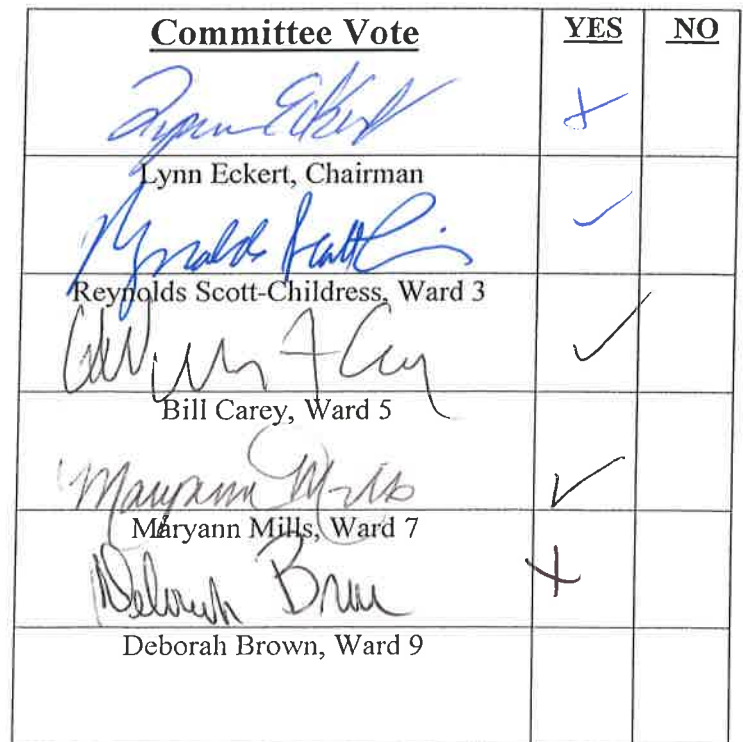 Committee Vote YES NO
Lynn Eckert
Lynn Eckert, Chairman
Reynolds Scott-Chi
Reynolds Scott-Childress, Ward 3
William A Carey
Bill Carey, Ward 5
Maryann Mills
Maryann Mills, Ward 7
Deborah Brown
Deborah Brown, Ward 9